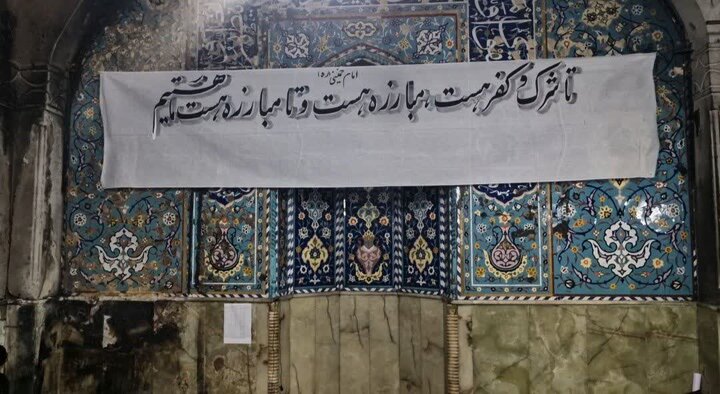 امام خمینی (ره)
تا شرک و کفر هست، مبارزه هست و تا مبارزه هست ما هستیم